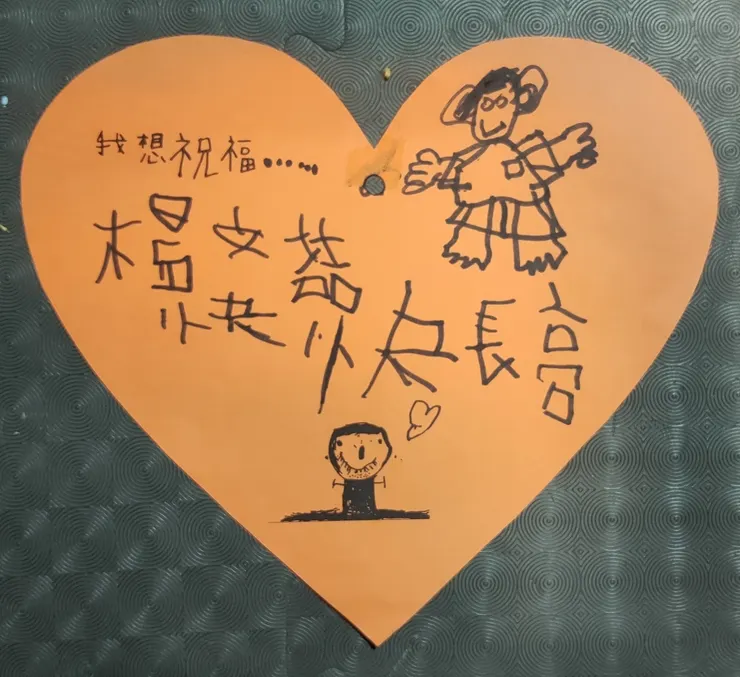 我想祝福……
楊文喆
快快長高